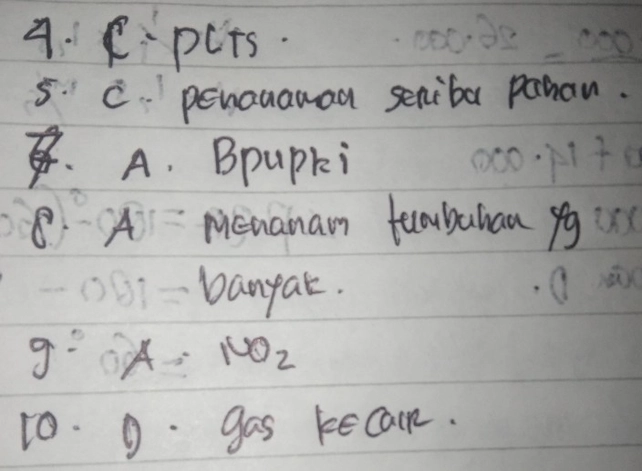 4. C. PLTS.
5. C. penanaman seribu pohon.
7. A. Bpupki
8. A Menanam tumbuhan yg
banyak.
9. A. NO2
10. D. gas ke cair.